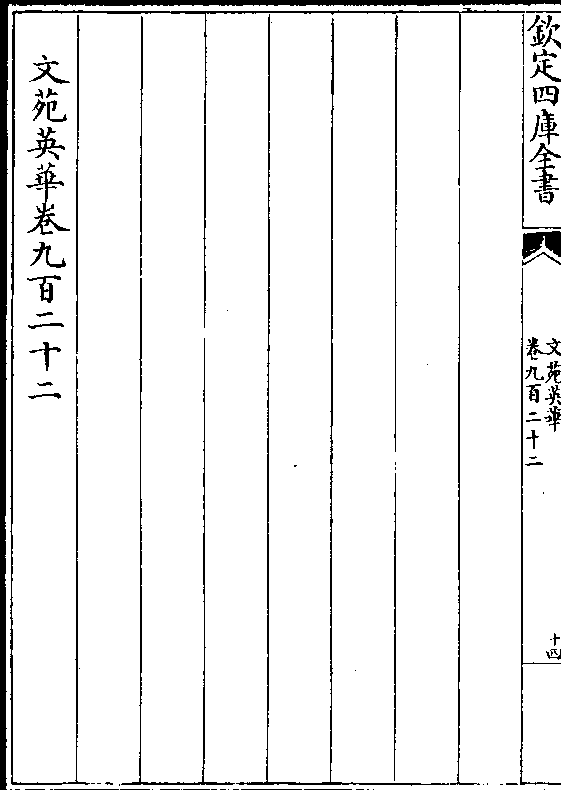 欽定四庫全書
文苑英華
卷九百二十二
十四
文苑英華卷九百二十二